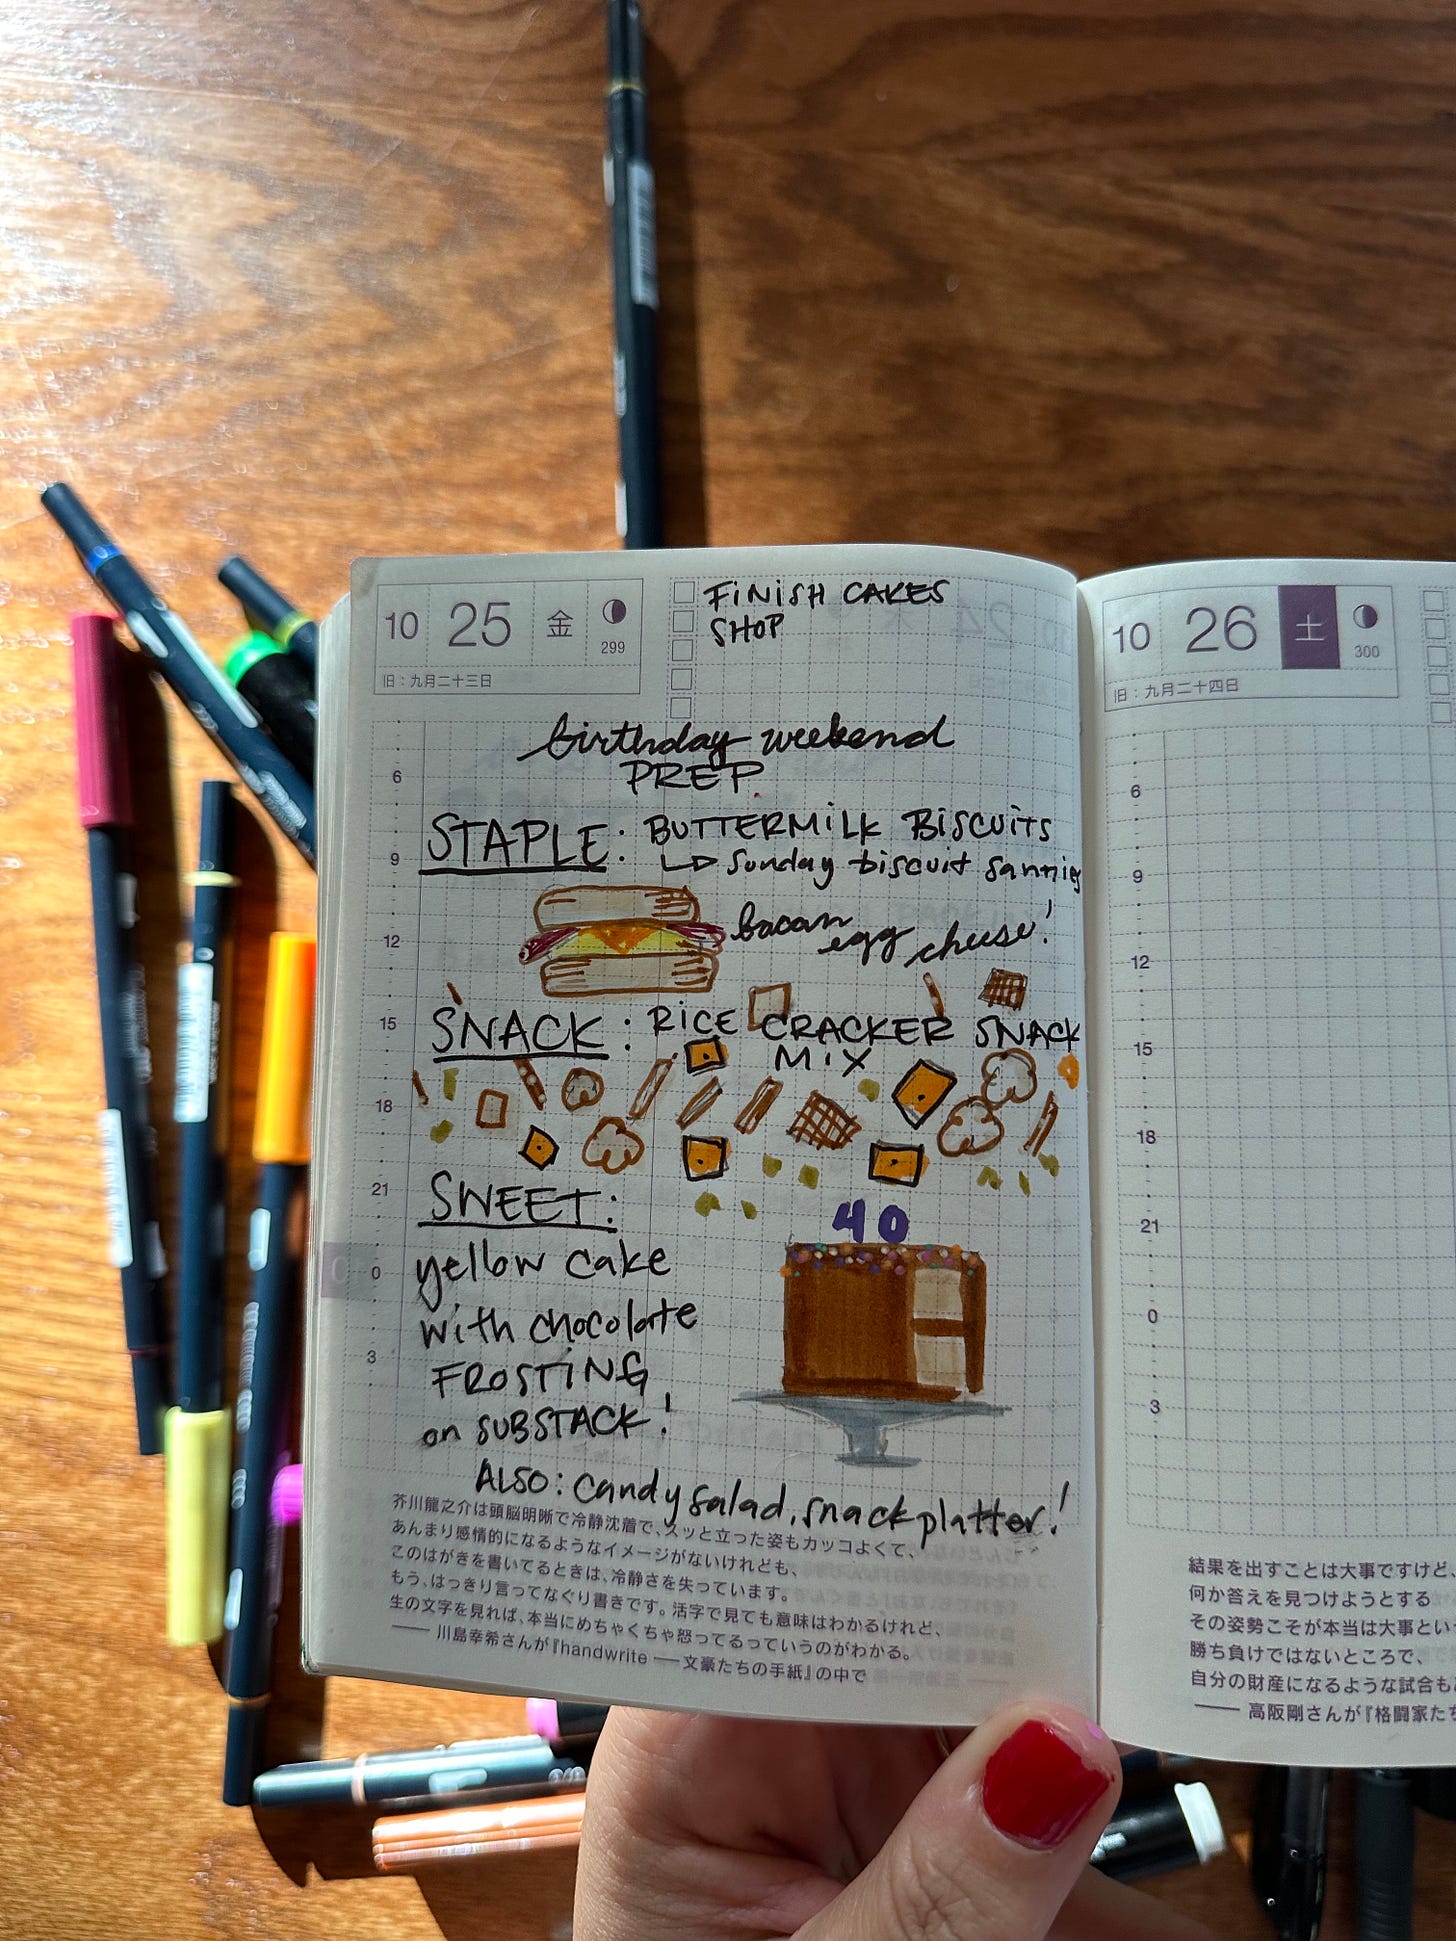 10 25 金 299
旧：九月二十三日
FINISH CAKES
SHOP
birthday weekend
PREP
STAPLE: BUTTERMILK BISCUITS
Sunday biscuit sannies
bacon egg cheese!
SNACK: RICE CRACKER SNACK
MIX
SWEET:
yellow cake
with chocolate
FROSTING
on SUBSTACK!
40
ALSO: candy salad, snack platter!
6
9
12
15
18
21
0
3
芥川龍之介は頭脳明晰で冷静沈着で、スッと立った姿もカッコよくて、
あんまり感情的になるようなイメージがないけれども、
このはがきを書いてるときは、冷静さを失っています。
もう、はっきり言ってなぐり書きです。活字で見ても意味はわかるけれど、
生の文字を見れば、本当にめちゃくちゃ怒ってるっていうのがわかる。
—— 川島幸希さんが『handwrite——文豪たちの手紙』の中で
10 26 土 300
旧：九月二十四日
6
9
12
15
18
21
0
3
結果を出すことは大事ですけど、
何か答えを見つけようとする
その姿勢こそが本当は大事とい
勝ち負けではないところで、
自分の財産になるような試合も
—— 高阪剛さんが『格闘家た